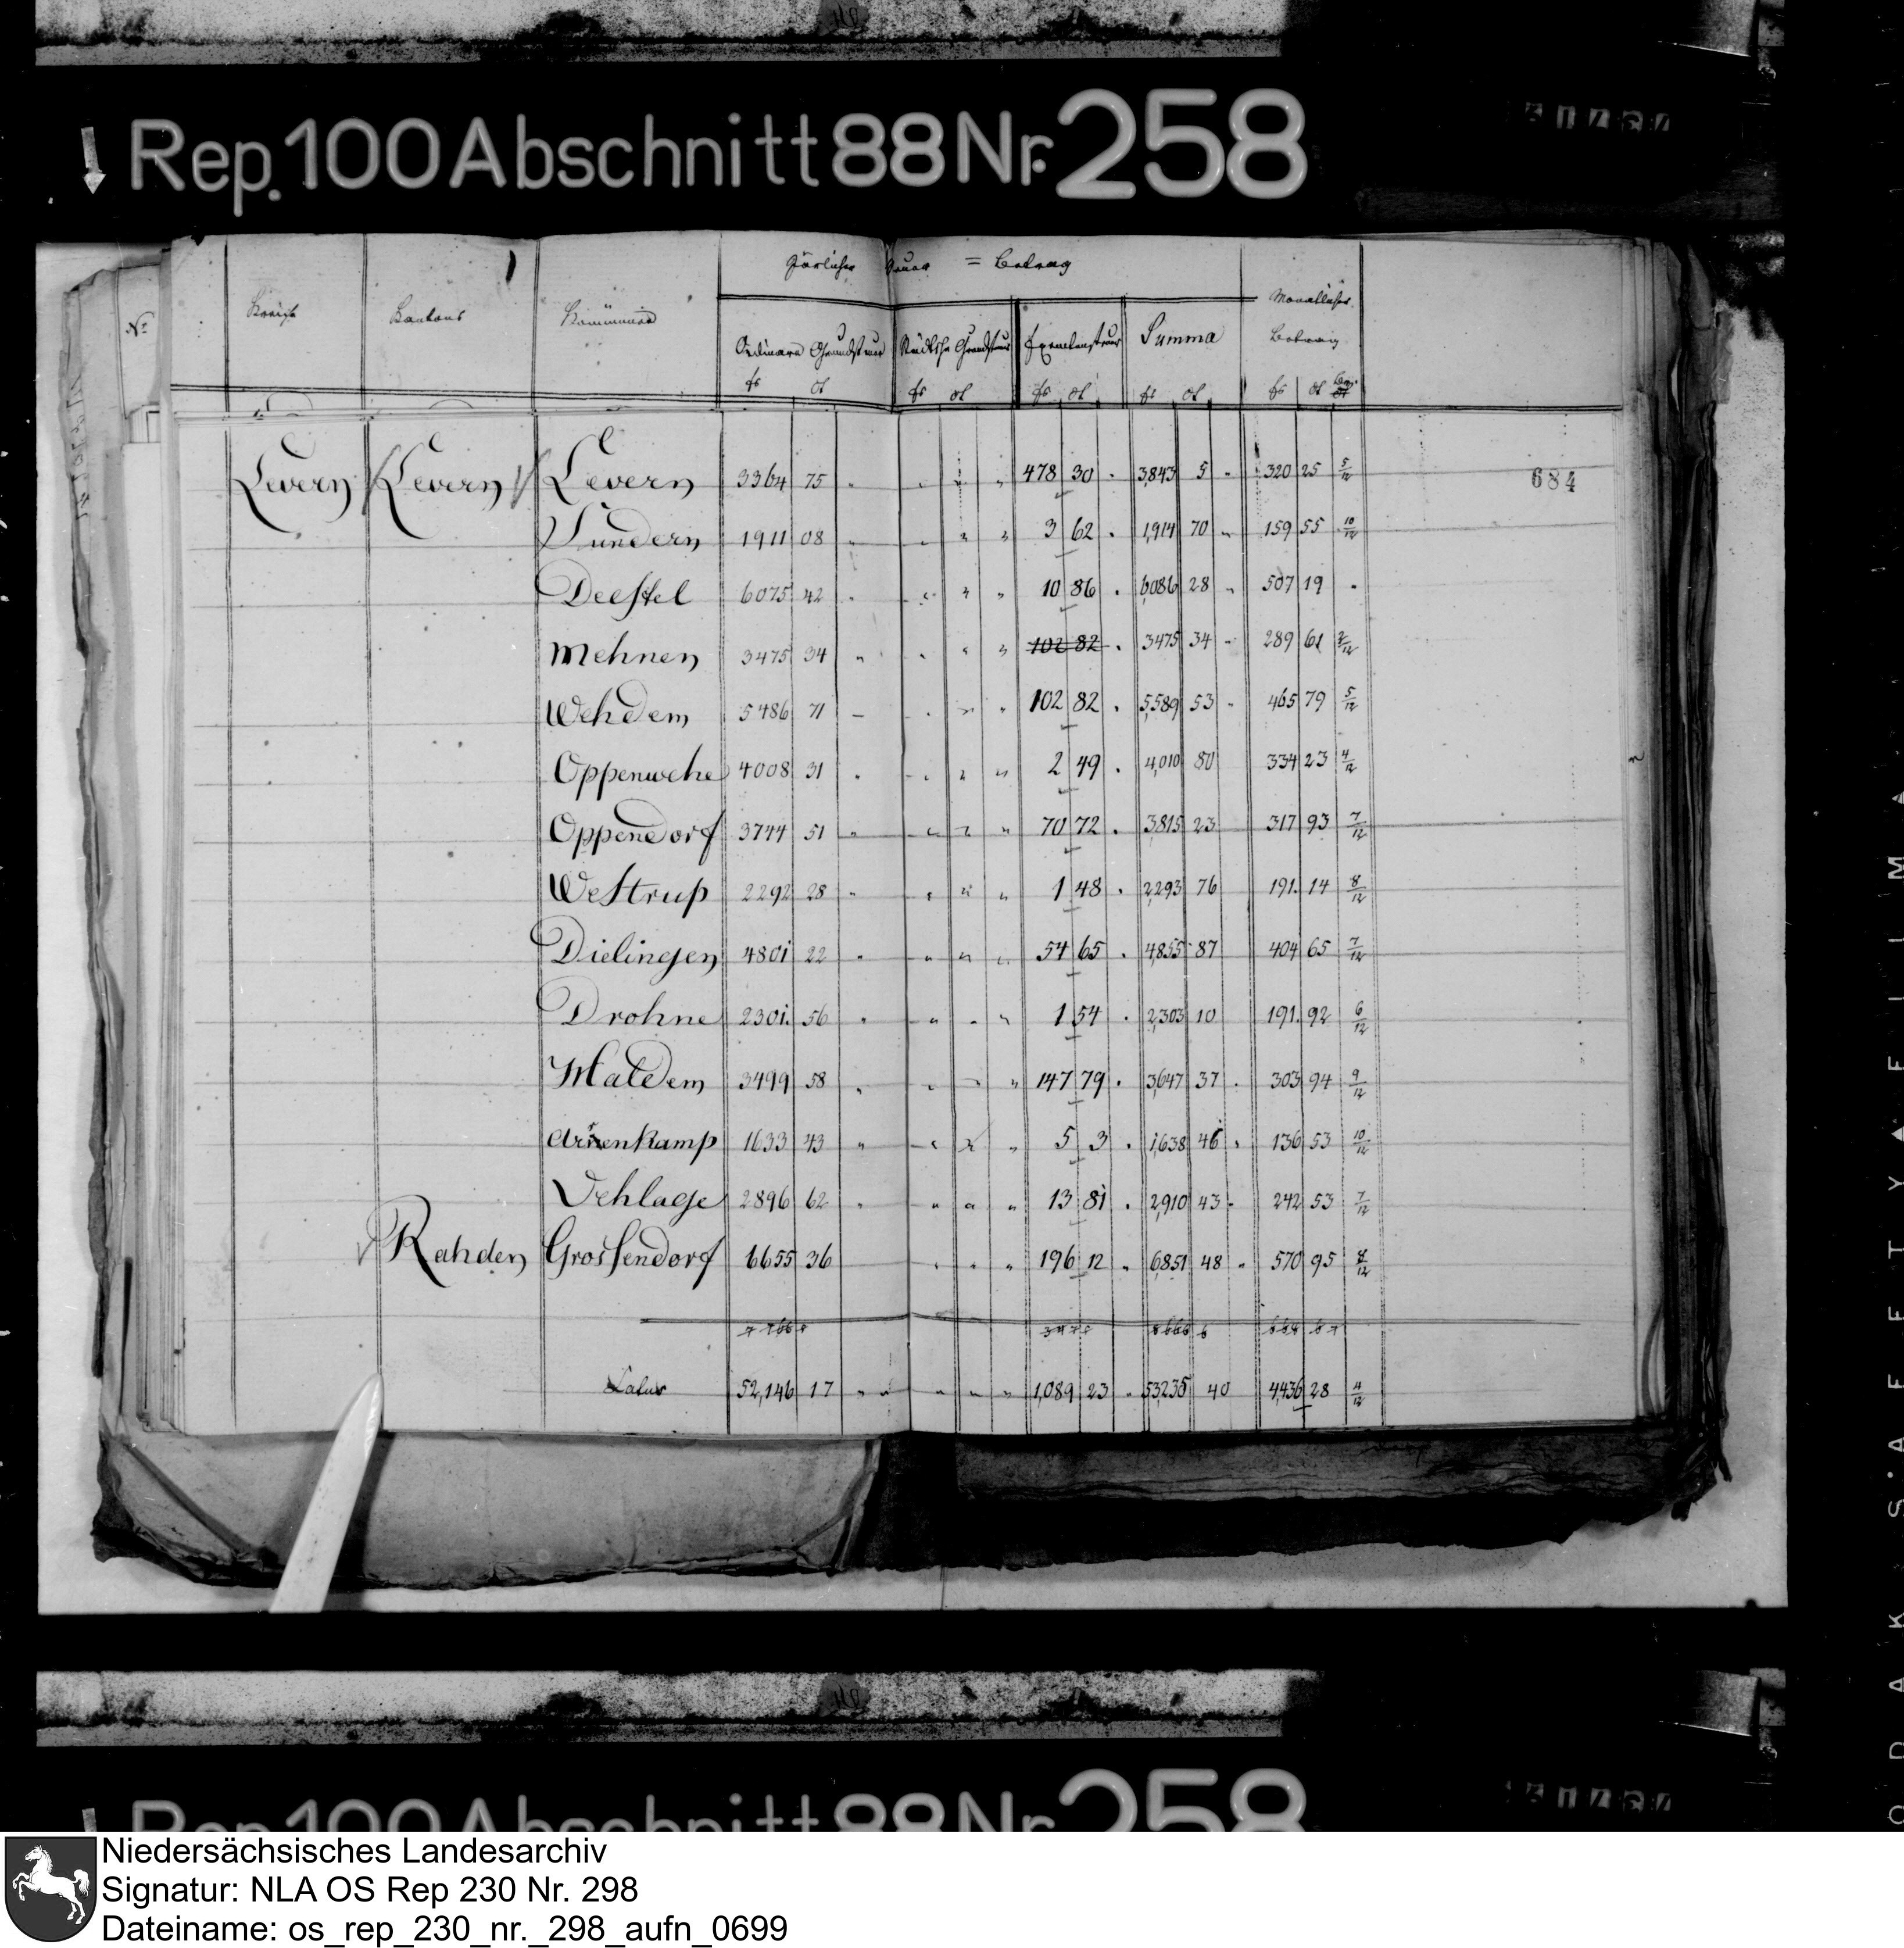 Rep. 100 Abschnitt 88 Nr. 258
Jährlicher Steuer = Betrag
No Kreise Cantons Kommunen Ordinaire Grundsteuer Städtsche Grundsteuer Exemtensteuer Summa Monatlicher Betrag
fs ct fs ct fs ct fs ct fs ct
Levern Levern Levern 3364 75 " " " " 478 30 . 3,843 5 - 320 25 5/12
684
Sundern 1911 08 " " " " 3 62 . 1,914 70 - 159 55 10/12
Destel 6075 42 " " " " 10 86 . 6,086 28 - 507 19 .
Mehnen 3475 34 " " " " 102 82 . 3475 34 - 289 61 2/12
Wehdem 5486 71 - " " " 102 82 . 5,589 53 - 465 79 5/12
Oppenwehe 4008 31 . " " " 2 49 . 4,010 80 334 23 4/12
Oppendorf 3744 51 " " " " 70 72 . 3,815 23 317 93 7/12
Westrup 2292 28 " " " " 1 48 . 2,293 76 191. 14 8/12
Dielingen 4801 22 " " " " 54 65 . 4,855 87 404 65 7/12
Drohne 2301. 56 " " " " 1 54 . 2,303 10 191. 92 6/12
Haldem 3499 58 " " " " 147 79 . 3,647 37 . 303 94 9/12
Arrenkamp 1633 43 " " " " 5 3 . 1,638 46 . 136 53 10/12
Vehlage 2896 62 " " " " 13 81 . 2,910 43 - 242 53 7/12
Rahden Grossendorf 6655 36 " " " 196 12 " 6,851 48 " 570 95 8/12
Latus 52,146 17 " " " " " 1,089 23 " 53,235 40 4,436 28 4/12
Rep. 100 Abschnitt 88 Nr. 258
Niedersächsisches Landesarchiv
Signatur: NLA OS Rep 230 Nr. 298
Dateiname: os_rep_230_nr._298_aufn_0699